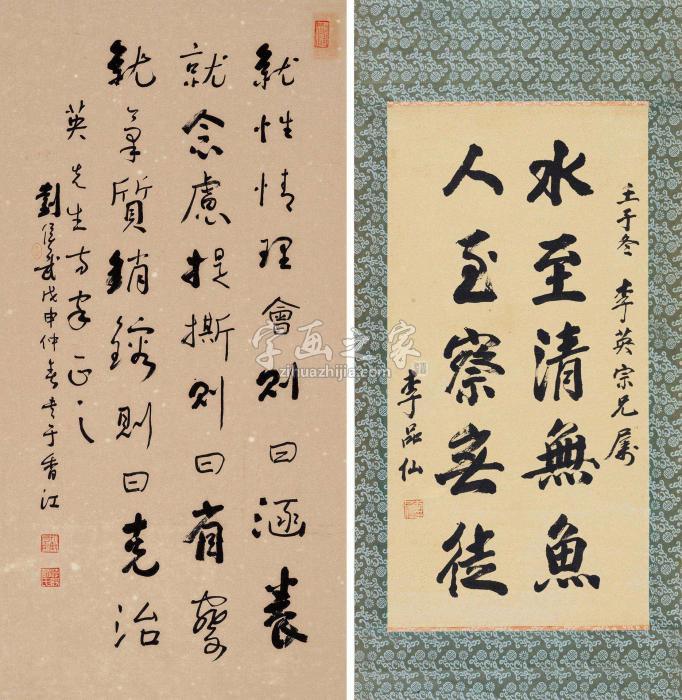 就性情理會則曰涵養
就念慮提撕則曰省察
就氣質銷鎔則曰克治
英先生方家正之
劉侯武戊申仲春書于香江
壬子冬 李英宗兄属
水至清無魚
人至察無徒
李品仙
字画之家
zihuazhijia.com